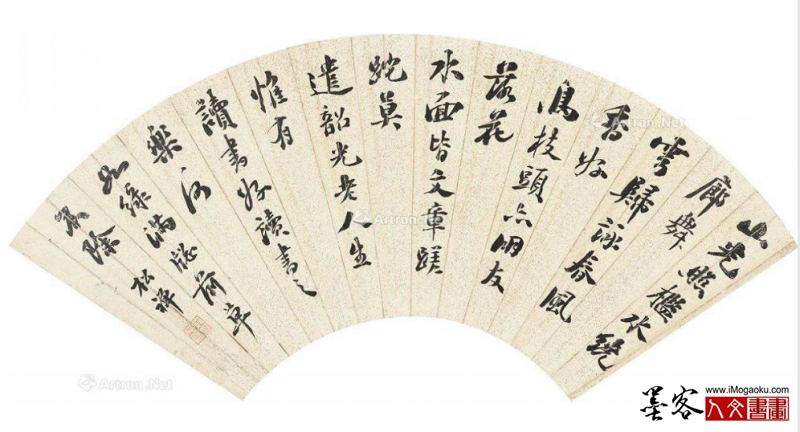 山光照檻水繞
廊舞
雩歸詠春風
香好
鳥枝頭亦朋友
落花
水面皆文章蹉
跎莫
遣韶光老人生
惟有
讀書好讀書之
樂何
如綠滿窗前草
不除
松禪
Artron.Net
Artron.Net
Artron.Net
Artron.Net
墨客
www.iMogaoku.com
人文書畫